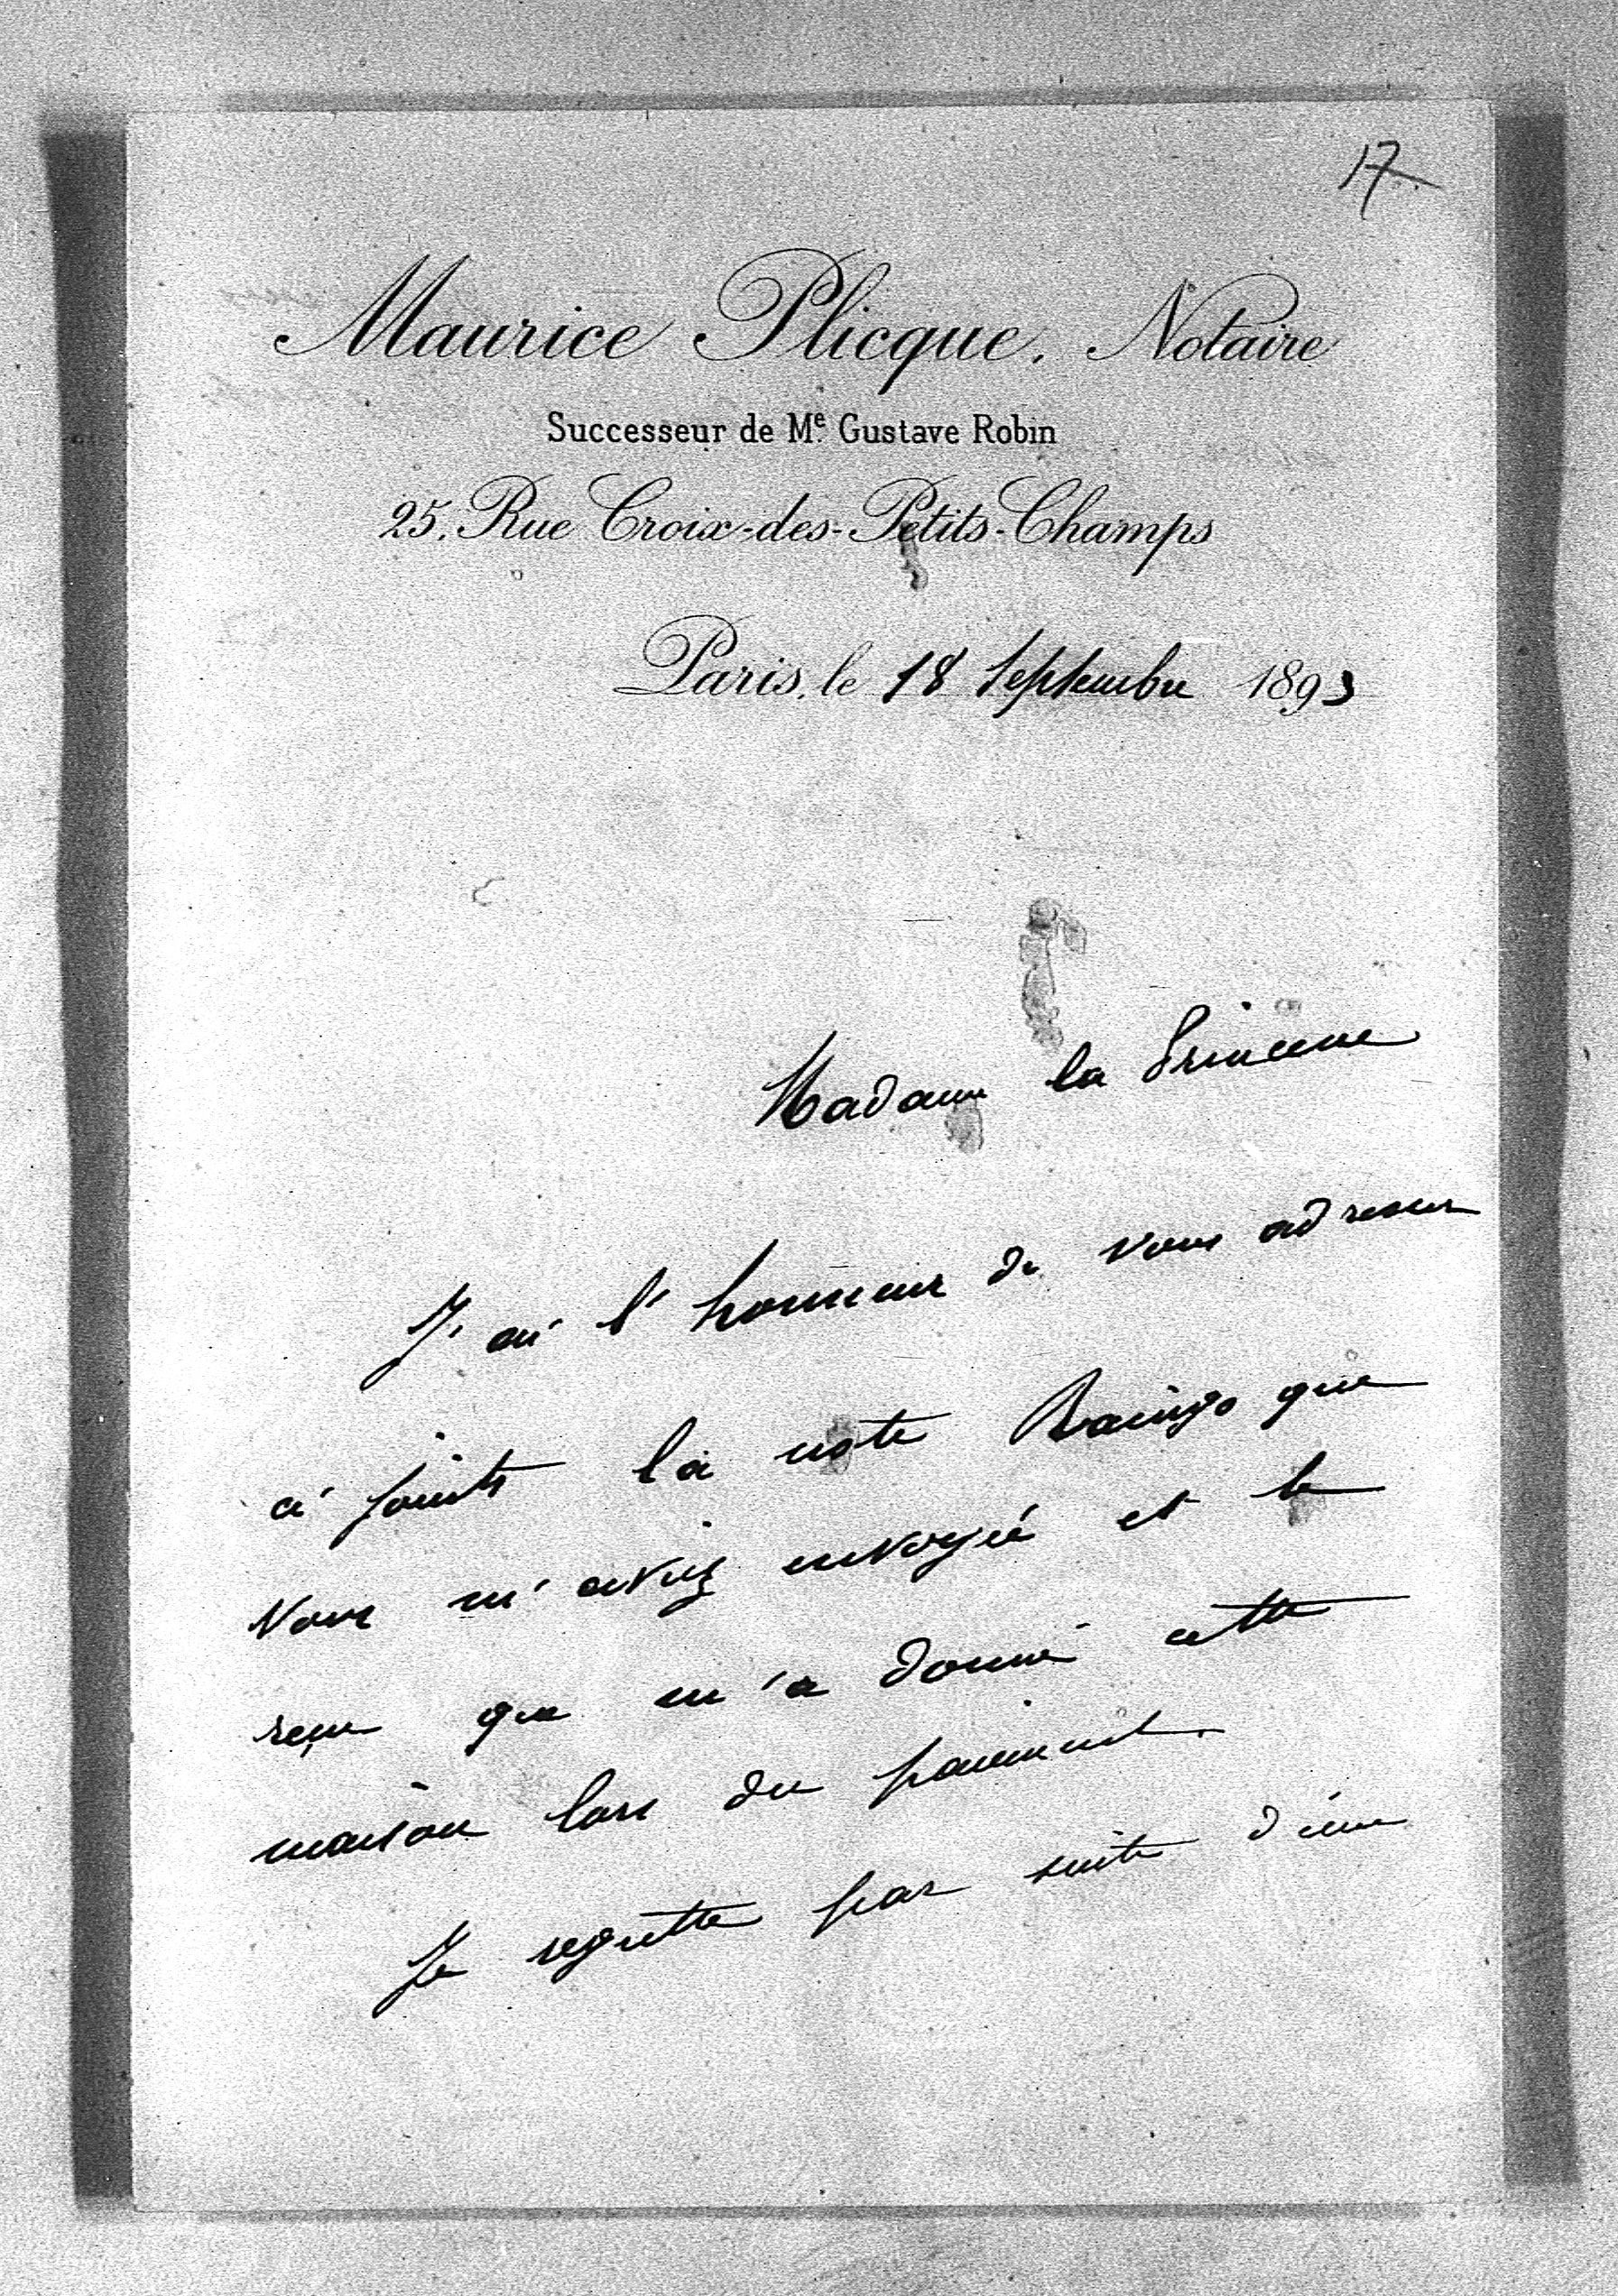 17
Maurice Plicque, Notaire
Successeur de Me. Gustave Robin
25, Rue Croix-des-Petits-Champs
Paris, le 18 Septembre 1893
Madame la Princesse
J'ai l'honneur de vous adresser
ci joints la note Raingo que
vous m'aviez envoyée et le
reçu que m'a donné cette
maison lors du paiement.
Je regrette par suite d'une